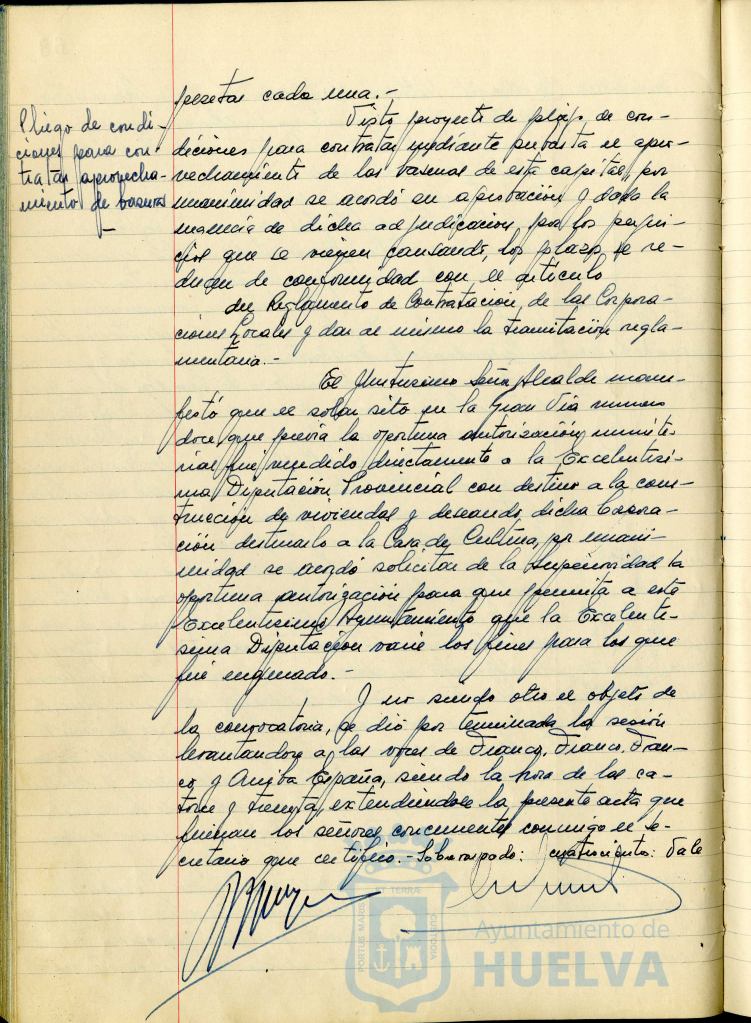 pesetas cada una.-
Pliego de condi-
ciones para con-
tratar aprovecha-
miento de basuras
Visto proyecto de pliego de con-
diciones para contratar mediante subasta el apro-
vechamiento de las basuras de esta capital, por
unanimidad se acordó su aprobación y dada la
urgencia de dicha adjudicación, por los perjui-
cios que se vienen causando, los plazos se re-
duzcan de conformidad con el artículo
del Reglamento de Contratación de las Corpora-
ciones Locales y dar al mismo la tramitación regla-
mentaria.-
El Ilustrísimo Señor Alcalde mani-
festó que el solar sito en la Gran Vía número
doce, que previa la oportuna autorización ministe-
rial fué vendido directamente a la Excelentísi-
ma Diputación Provincial con destino a la cons-
trucción de viviendas y deseando dicha Corpora-
ción destinarlo a la Casa de Cultura, por unani-
midad se acordó solicitar de la Superioridad la
oportuna autorización para que permita a este
Excelentísimo Ayuntamiento que la Excelentí-
sima Diputación varíe los fines para los que
fué enajenado.-
Y no siendo otro el objeto de
la convocatoria, se dió por terminada la sesión
levantándose a las voces de Franco, Franco, Fran-
co y Arriba España, siendo la hora de las ca-
torce y treinta, extendiéndose la presente acta que
firman los señores concurrentes conmigo el Se-
cretario que certifico.- Sobrerraspado: cuatrocientos: Vale
PORTUS MARIS ET TERRAE CUSTODIA
Ayuntamiento de
HUELVA